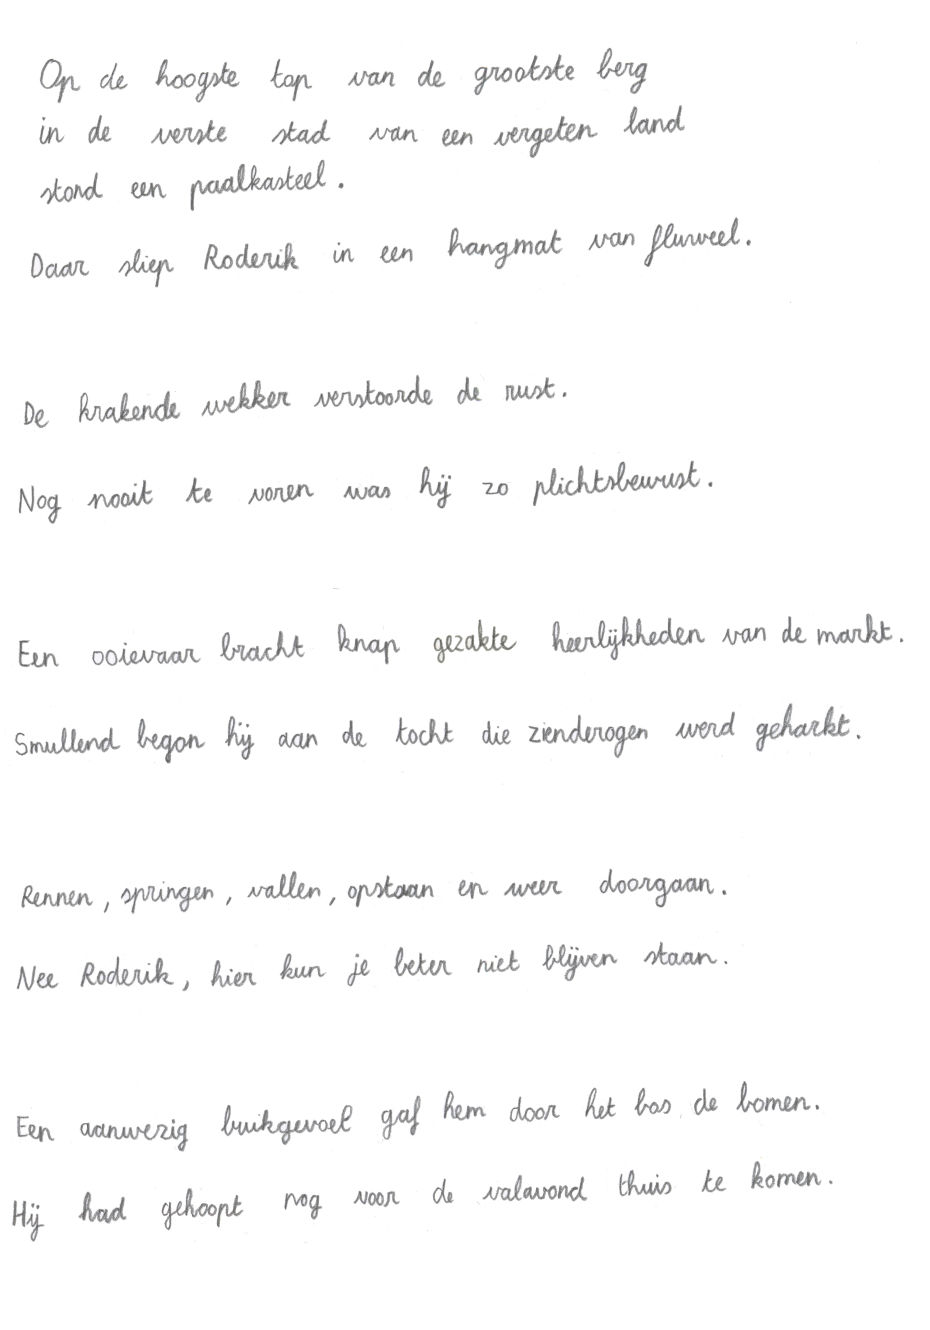 Op de hoogste top van de grootste berg
in de verste stad van een vergeten land
stond een paalkasteel.
Daar sliep Roderik in een hangmat van fluweel.
De krakende wekker verstoorde de rust.
Nog nooit te voren was hij zo plichtsbewust.
Een ooievaar bracht knap gezakte heerlijkheden van de markt.
Smullend begon hij aan de tocht die zienderogen werd geharkt.
Rennen, springen, vallen, opstaan en weer doorgaan.
Nee Roderik, hier kun je beter niet blijven staan.
Een aanwezig buikgevoel gaf hem door het bos de bomen.
Hij had gehoopt nog voor de valavond thuis te komen.